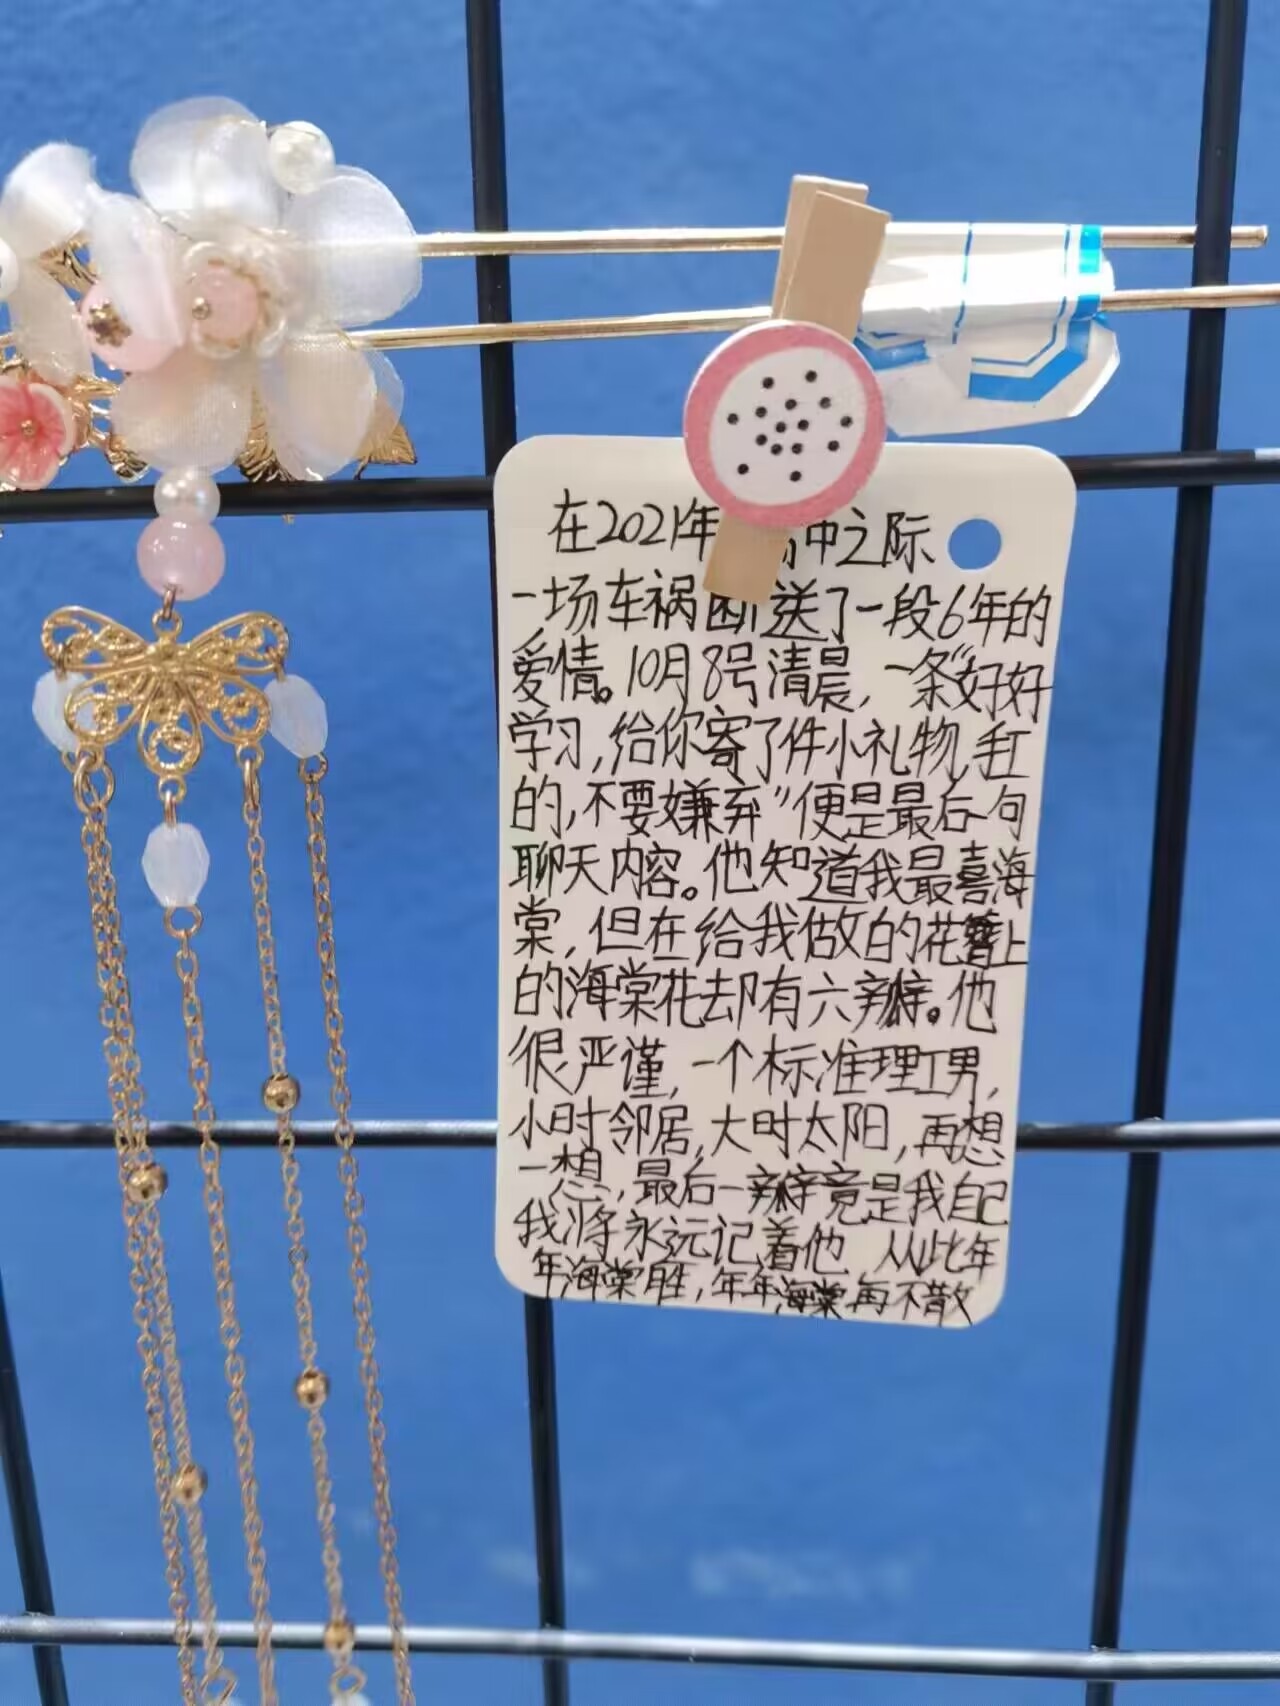 在2021年 中之际
一场车祸断送了一段6年的
爱情。10月8号清晨，一条“好好
学习，给你寄了件小礼物，手工
的，不要嫌弃”便是最后一句
聊天内容。他知道我最喜海
棠，但在给我做的花簪上
的海棠花去却有六瓣。他
很严谨，一个标准理工男，
小时邻居，大时太阳，再想
一想，最后一瓣竟是我自己
我将永远记着他 从此年
年海棠胜，年年海棠再不散